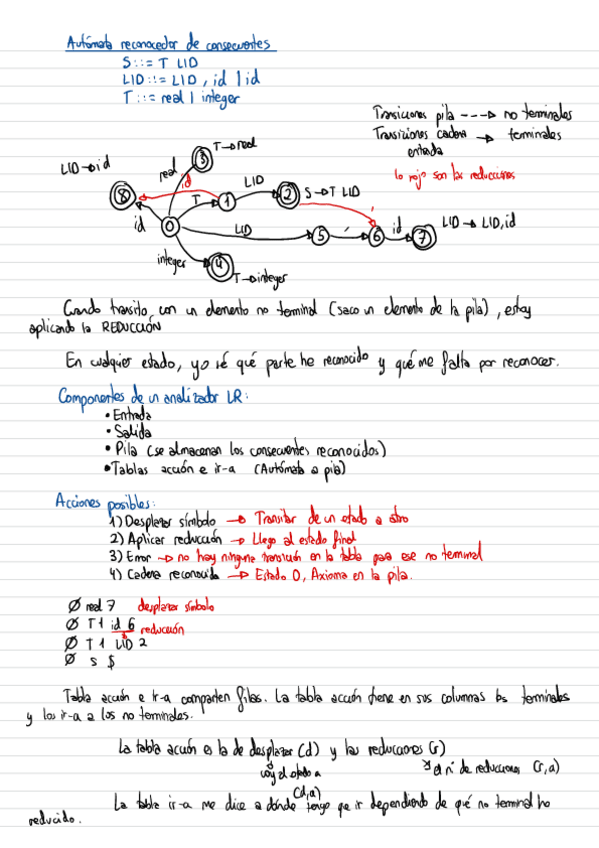 Autómata reconocedor de consecuentes
S::= T LID
LID::= LID, id | id
T::= real | integer
Transiciones pila ---> no terminales
Transiciones cadena → terminales
entrada
lo rojo son las reducciones
T→real
3
real
LID→id
8
id
T
1
LID
2
S→T LID
id
0
LID
5
,
6
id
7
LID→LID,id
integer
4
T→integer
Cuando transito, con un elemento no terminal (saco un elemento de la pila), estoy
aplicando la REDUCCIÓN
En cualquier estado, yo sé qué parte he reconocido y qué me falta por reconocer.
Componentes de un analizador LR:
• Entrada
• Salida
• Pila (se almacenan los consecuentes reconocidos)
• Tablas acción e ir-a (Autómata a pila)
Acciones posibles:
1) Desplazar símbolo → Transitar de un estado a otro
2) Aplicar reducción → Llego al estado final
3) Error → no hay ninguna transición en la tabla para ese no terminal
4) Cadena reconocida → Estado 0, Axioma en la pila.
Ø real 7 desplazar símbolo
Ø T 1 id 6 reducción
Ø T 1 LID 2
Ø S $
Tabla acción e ir-a comparten filas. La tabla acción tiene en sus columnas los terminales
y los ir-a a los no terminales.
La tabla acción es la de desplazar (d) y las reducciones (r)
voy al estado a
el nº de reducciones (r,a)
(d,a)
La tabla ir-a me dice a dónde tengo que ir dependiendo de qué no terminal ha
reducido.